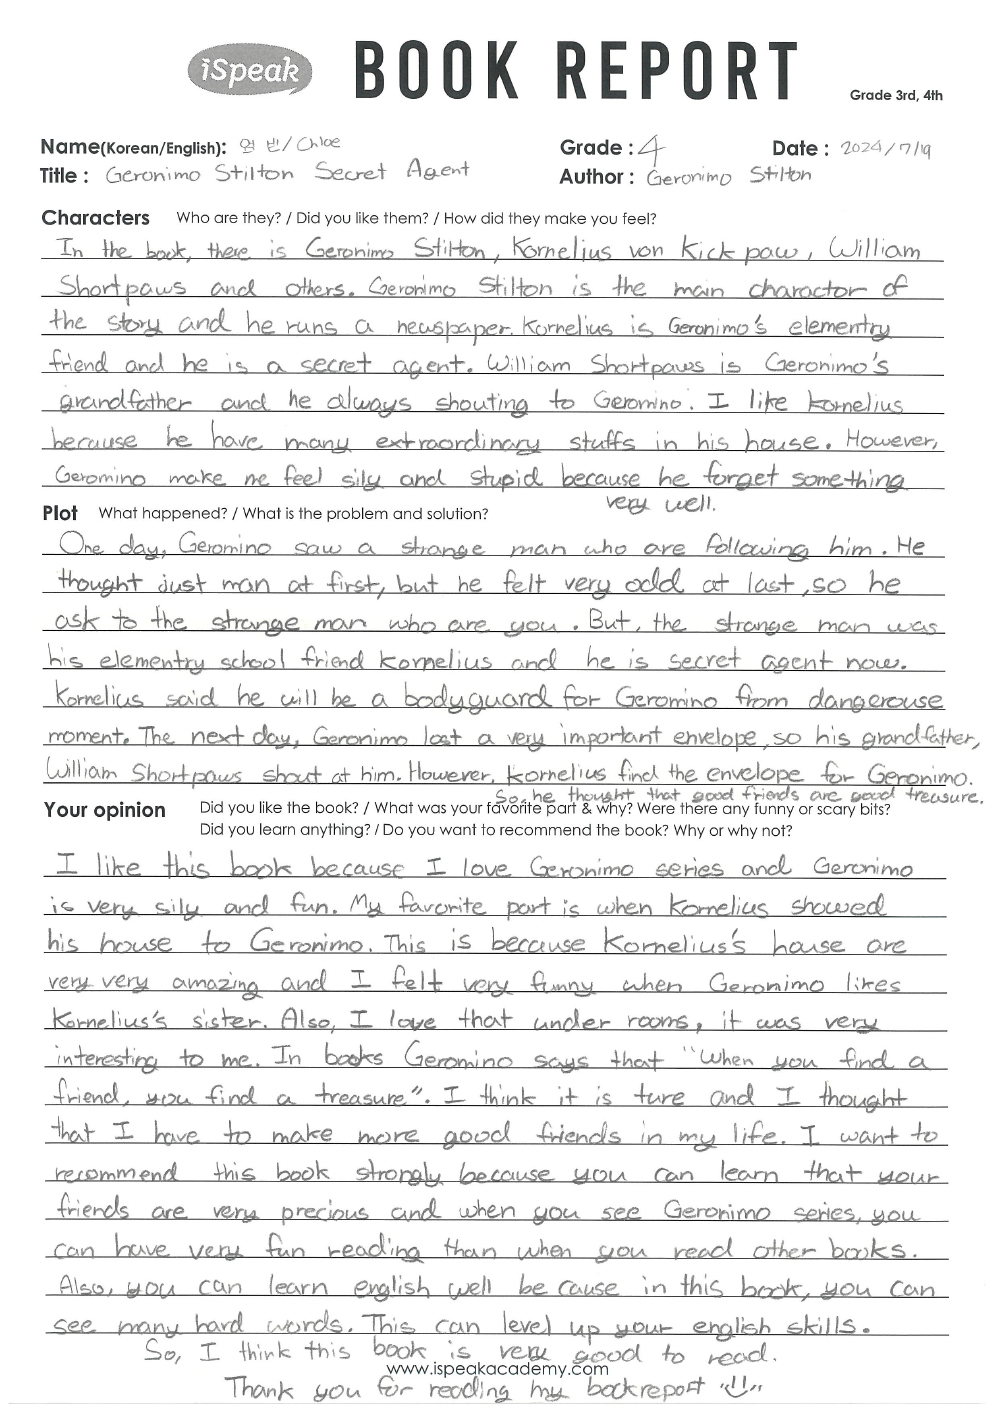 iSpeak BOOK REPORT
Grade 3rd, 4th
Name(Korean/English): 원빈/Chloe Grade : 4 Date : 2024/7/19
Title : Geronimo Stilton Secret Agent Author : Geronimo Stilton
Characters Who are they? / Did you like them? / How did they make you feel?
In the book, there is Geronimo Stilton, Kornelius von Kick paw, William
Shortpaws and others. Geronimo Stilton is the main charactor of
the story and he runs a newspaper. Kornelius is Geronimo's elementry
friend and he is a secret agent. William Shortpaws is Geronimo's
grandfather and he always shouting to Geromino. I like kornelius
because he have many extraordinary stuffs in his house. However,
Geromino make me feel sily and stupid because he forget something
very well.
Plot What happened? / What is the problem and solution?
One day, Geromino saw a strange man who are following him. He
thought just man at first, but he felt very odd at last, so he
ask to the strange man who are you. But, the strange man was
his elementry school friend Kornelius and he is secret agent now.
Kornelius said he will be a bodyguard for Geromino from dangerouse
moment. The next day, Geronimo lost a very important envelope, so his grandfather,
William Shortpaws shout at him. However, kornelius find the envelope for Geronimo.
So, he thought that good friends are good treasure.
Your opinion Did you like the book? / What was your favorite part & why? Were there any funny or scary bits?
Did you learn anything? / Do you want to recommend the book? Why or why not?
I like this book because I love Geronimo series and Geronimo
is very sily and fun. My favorite part is when Kornelius showed
his house to Geronimo. This is because Kornelius's house are
very very amazing and I felt very funny when Geronimo likes
Kornelius's sister. Also, I love that under rooms, it was very
interesting to me. In books Geromino says that "When you find a
friend, you find a treasure". I think it is ture and I thought
that I have to make more good friends in my life. I want to
recommend this book strongly because you can learn that your
friends are very precious and when you see Geronimo series, you
can have very fun reading than when you read other books.
Also, you can learn english well be cause in this book, you can
see many hard words. This can level up your english skills.
So, I think this book is very good to read.
www.ispeakacademy.com
Thank you for reading my bookreport